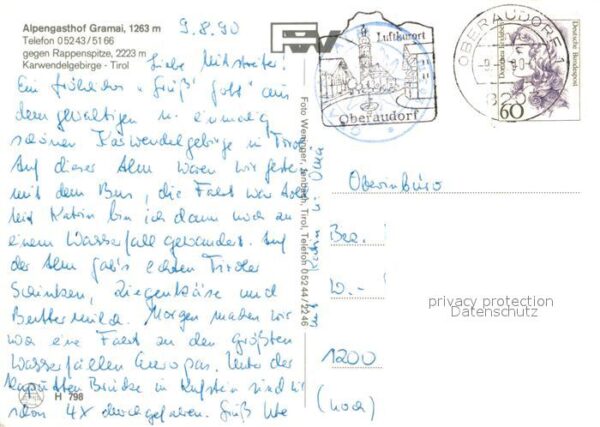 Alpengasthof Gramai, 1263 m
Telefon 05243/5166
gegen Rappenspitze, 2223 m
Karwendelgebirge - Tirol
9.8.90
Liebe Mitstreiter!
Ein fröhliches „Grüß Gott" aus
dem gewaltigen u. einmalig
schönen Karwendelgebirge in Tirol
Auf dieser Alm waren wir gestern
mit dem Bus, die Fahrt war toll
Mit Katrin bin ich dann noch zu
einem Wasserfall gewandert. Auf
der Alm gab's echten Tiroler
Schinken, Ziegenkäse und
Buttermilch. Morgen machen wir
eine Fahrt zu den größten
Wasserfällen Europas. Unter der
kaputten Brücke in Kufstein sind wir
schon 4x durchgefahren. Gruß Ute
H 798
Foto Wenninger, Jenbach, Tirol, Telefon 05244/2246
Luftkurort
Oberaudorf
OBERAUDORF 1
60
Deutsche Bundespost
Oberinbüro
W.-
1200
(noch)
privacy protection
Datenschutz